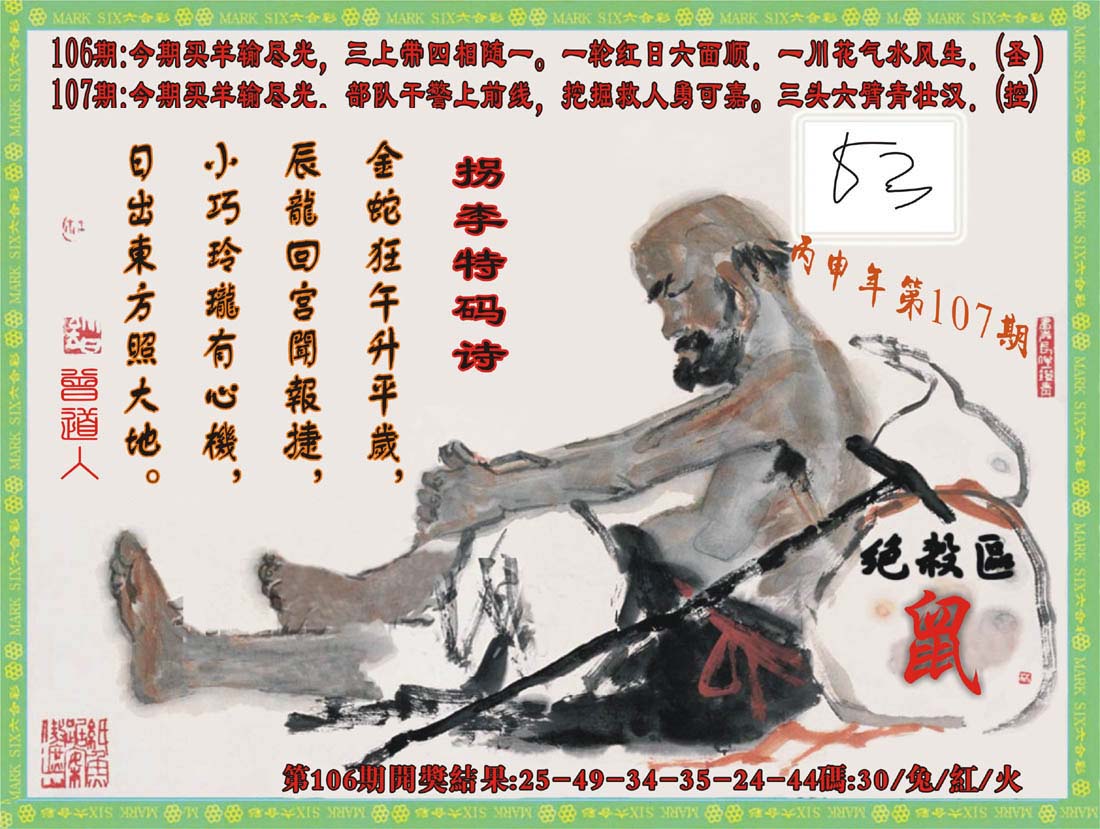 MARK SIX六合彩 MARK SIX六合彩 MARK SIX六合彩 MARK SIX六合彩 MARK SIX六合彩 MARK SIX六合彩 MARK SIX六合彩
106期:今期买羊输尽光，三上带四相随一。一轮红日六面顺．一川花气水风生．(圣)
107期:今期买羊输尽光．部队干警上前线，挖掘救人勇可嘉。三头六臂青壮汉．(控)
丙申年第107期
拐李特码诗
金蛇狂午升平歲，
辰龍回宮聞報捷，
小巧玲瓏有心機，
日出東方照大地。
曾道人
绝殺區
鼠
第106期開獎結果:25-49-34-35-24-44碼:30/兔/紅/火